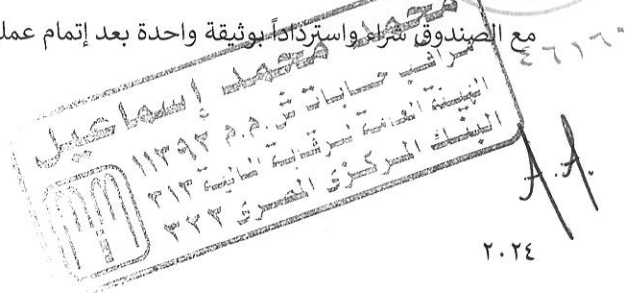 مع الصندوق شراء واسترداداً بوثيقة واحدة بعد إتمام
محمد محمد إسماعيل
مراقب حسابات ش.م.م ١١٣٩٢
الهيئة العامة للرقابة المالية ٣١٣
البنك المركزى المصرى ٣٢٣
A.A.
٢٠٢٤